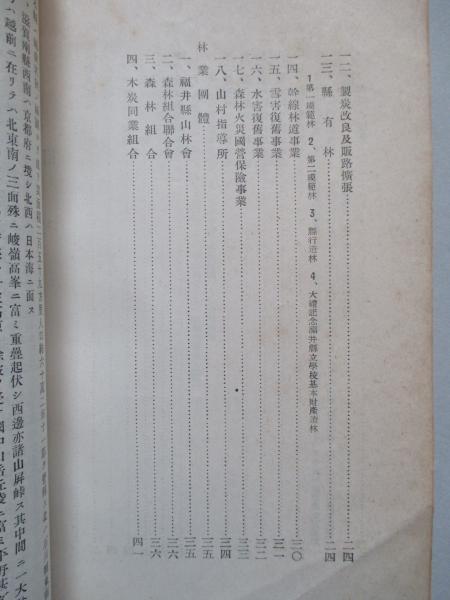 一二、製炭改良及販路擴張……二四
一三、縣有林……二四
1 第一模範林 2、第二模範林 3、縣行造林 4、大禮記念福井縣立學校基本財產造林
一四、幹線林道事業……三〇
一五、雪害復舊事業……三一
一六、水害復舊事業……三二
一七、森林火災國營保險事業……三三
一八、山村指導所……三四
林業團體……三五
一、福井縣山林會……三五
二、森林組合聯合會……三六
三、森林組合……三六
四、木炭同業組合……四一
滋賀兩縣西南ハ京都府ニ境シ北西ハ日本海ニ面ス
越前ニ在リテハ北東南ノ三面殊ニ峻嶺高峯ニ富ミ重疊起伏シ西邊亦諸山屛峙ス其中間ニ一大